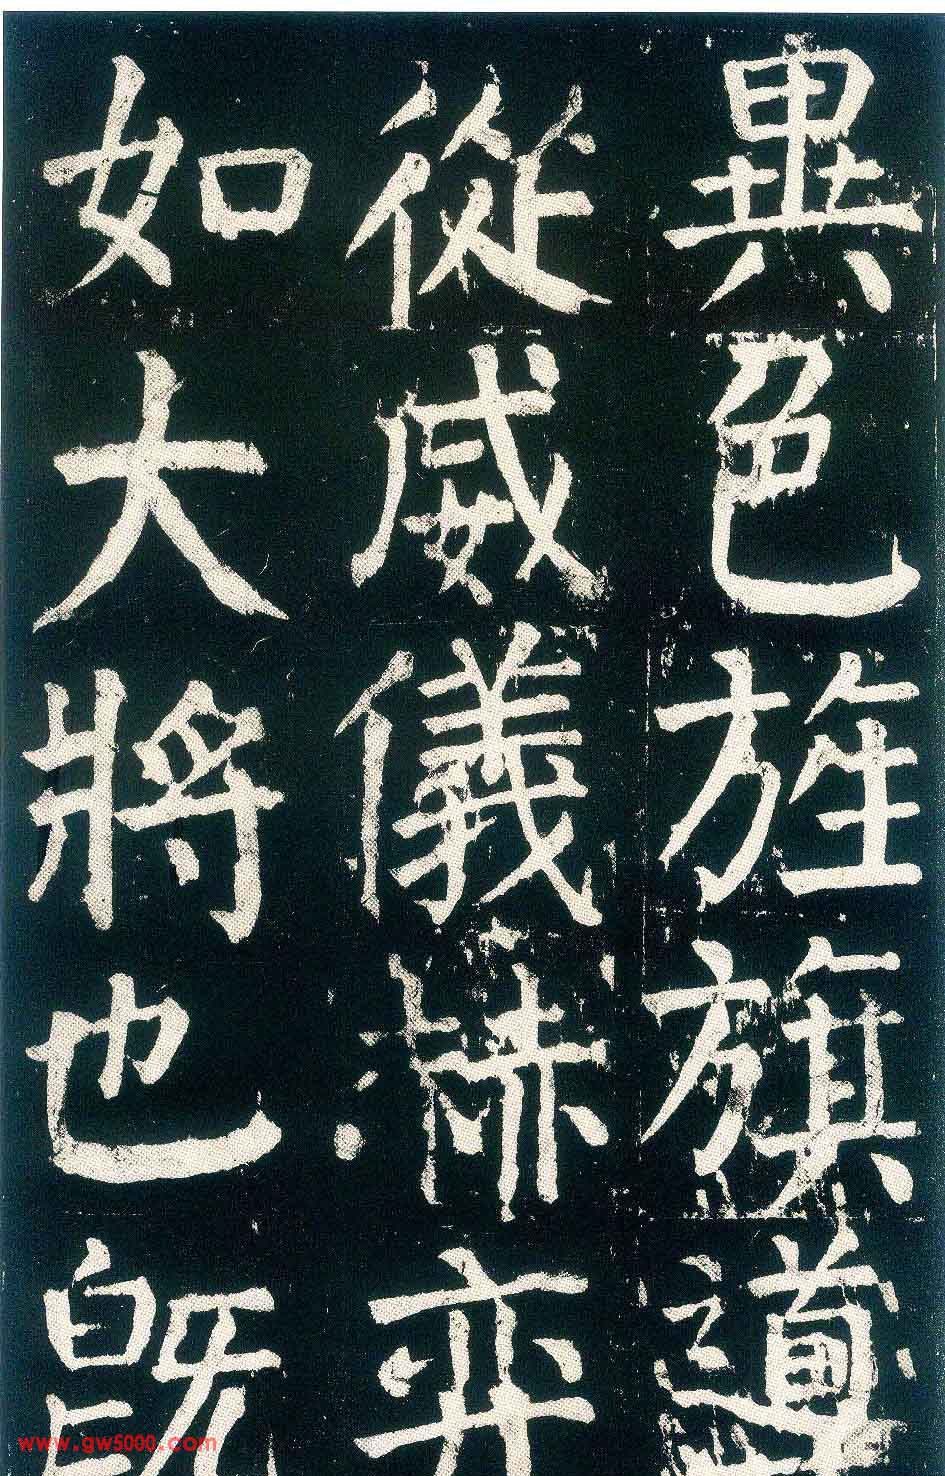 異色旌旗導
從威儀赫奕
如大將也既
www.gw5000.com